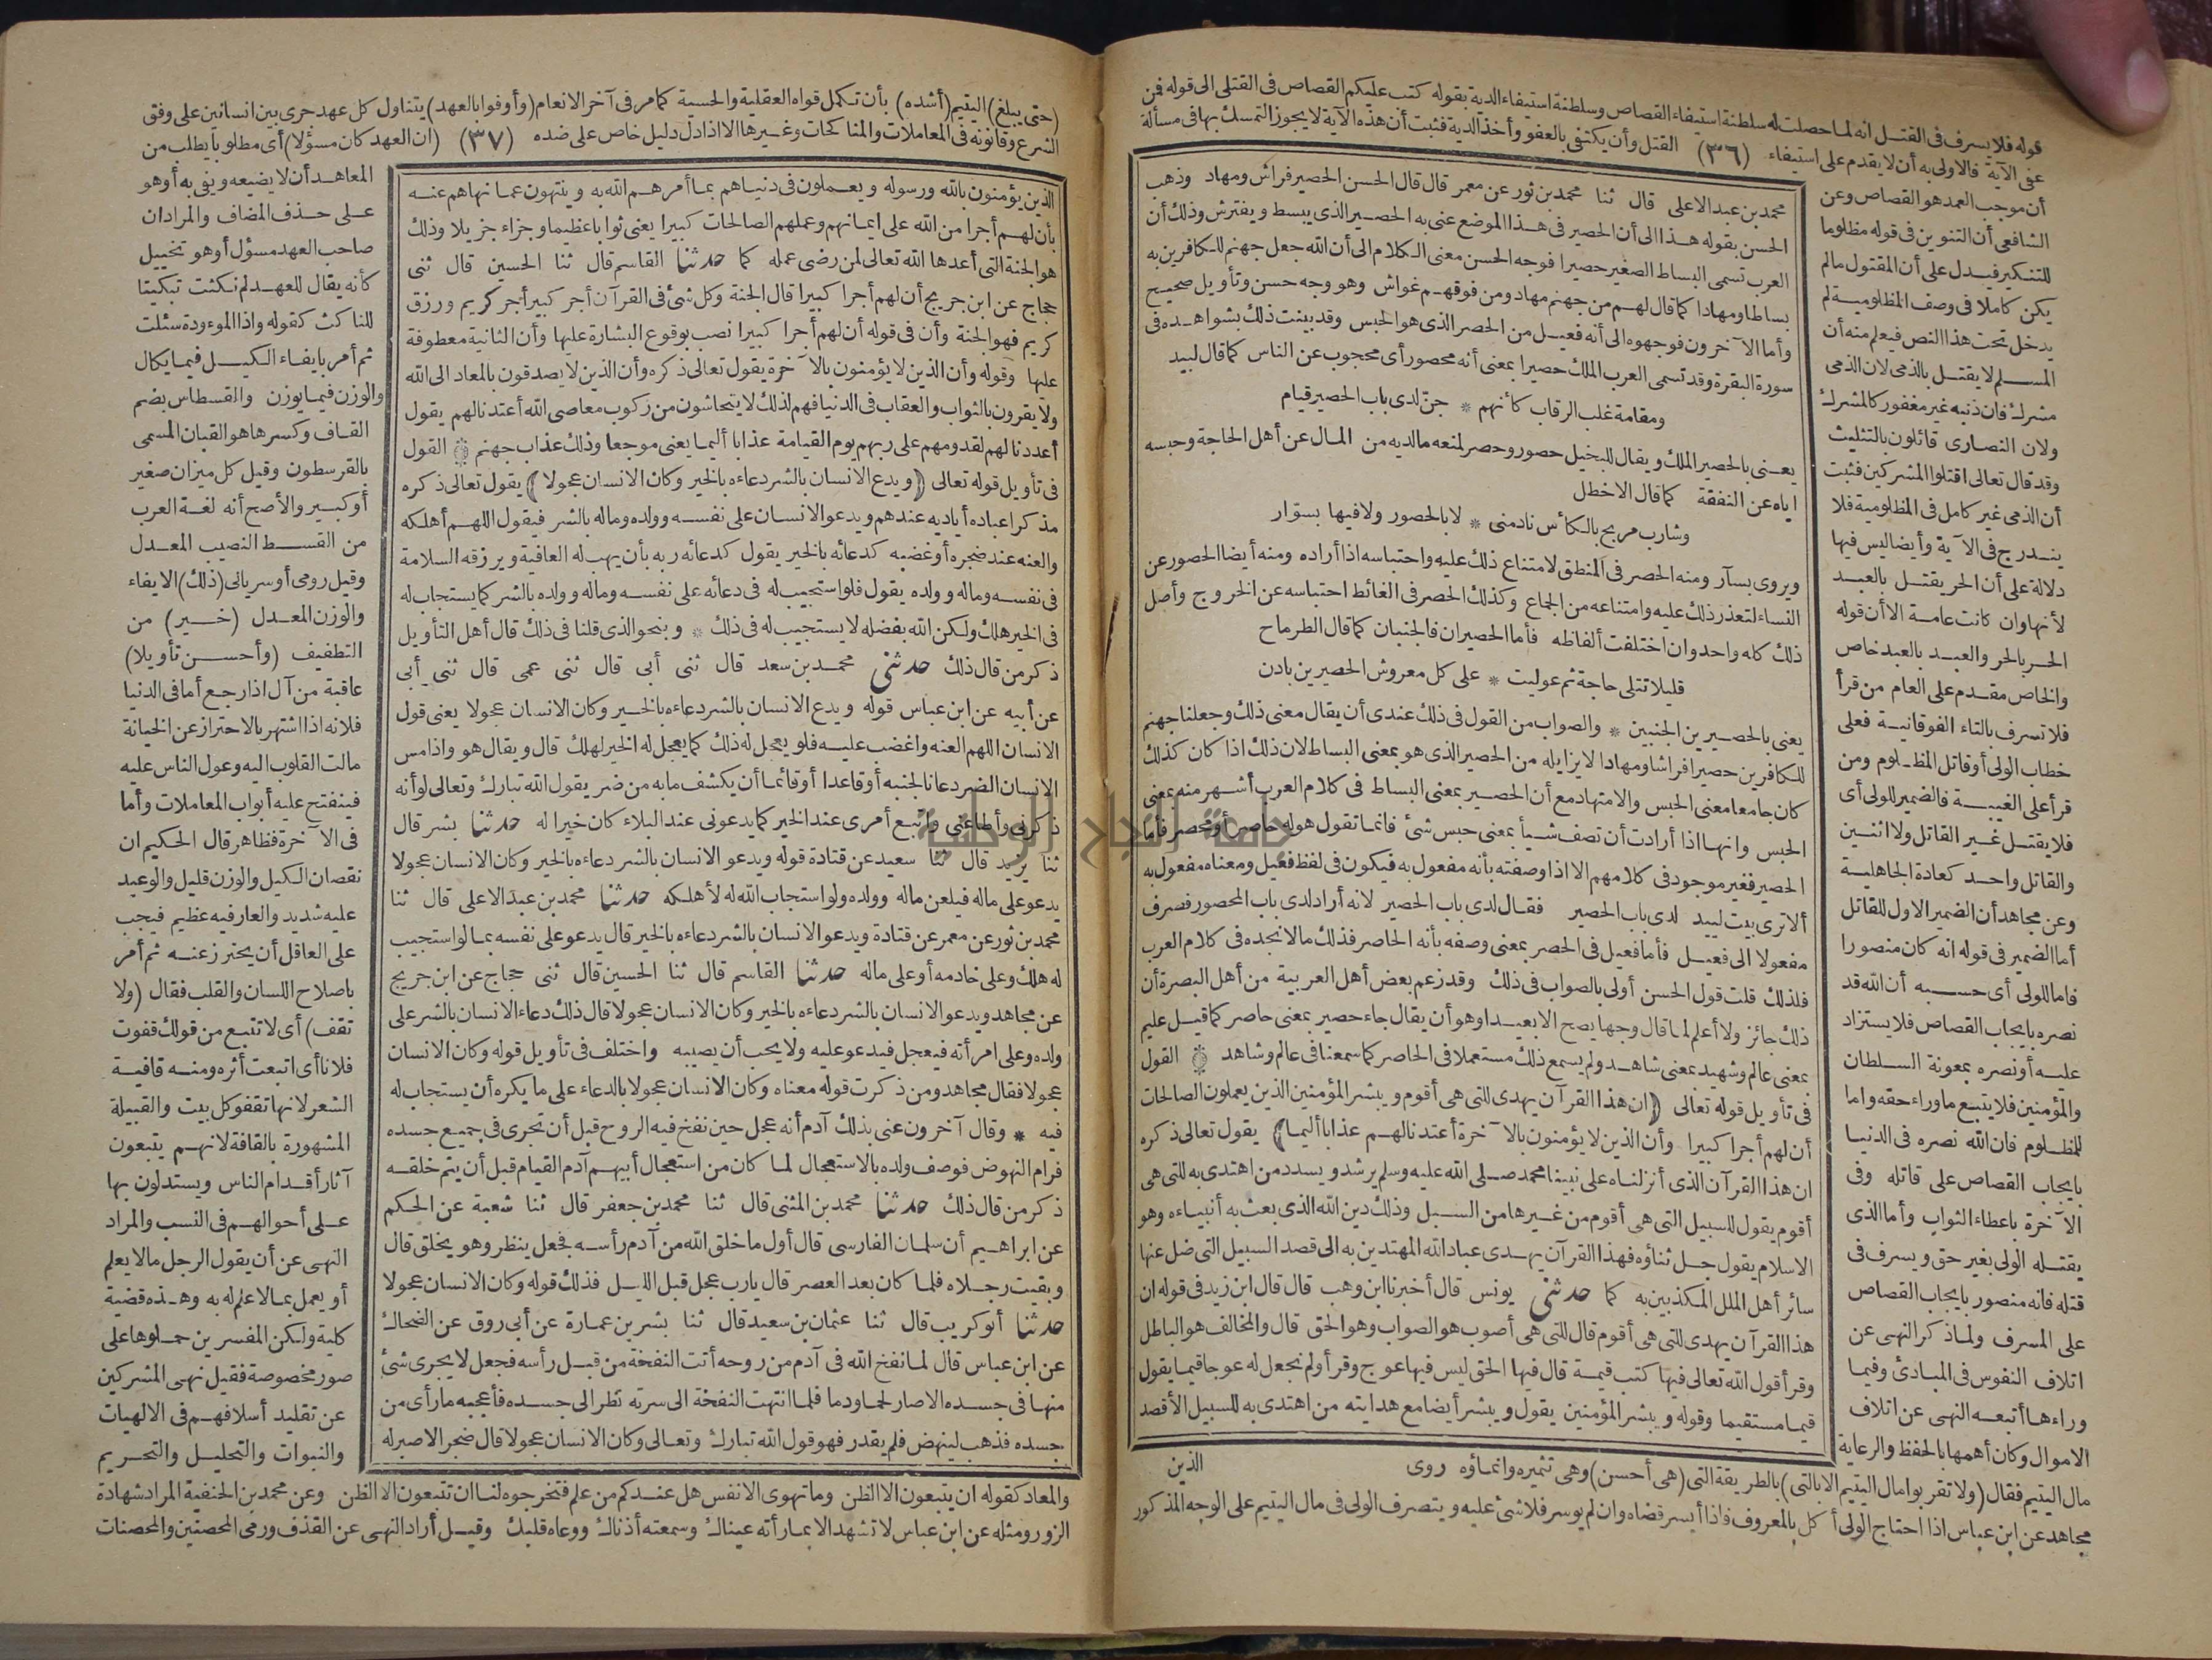 قوله فلا يسرف فى القتل انه لما حصلت له سلطنة استيفاء القصاص وسلطنة استيفاء الدية بقوله كتب عليكم القصاص فى القتلى الى قوله فمن
عفى الآية فالاولى به أن لا يقدم على استيفاء (٣٦) القتل وأن يكتفى بالعفو وأخذ الدية فثبت أن هذه الآية لا يجوز التمسك بها فى مسألة
أن موجب العمد هو القصاص وعن
الشافعى أن التنوين فى قوله مظلوما
للتنكير فيدل على أن المقتول مالم
يكن كاملا فى وصف المظلومية لم
يدخل تحت هذا النص فيعلم منه أن
المسلم لا يقتل بالذمى لان الذمى
مشرك فان ذنبه غير مغفور كالمشرك
ولان النصارى قائلون بالتثليث
وقد قال تعالى اقتلوا المشركين فثبت
أن الذمى غير كامل فى المظلومية فلا
يندرج فى الآية وأيضا ليس فيها
دلالة على أن الحر يقتل بالعبد
لأنها وان كانت عامة الا أن قوله
الحر بالحر والعبد بالعبد خاص
والخاص مقدم على العام من قرأ
فلا تسرف بالتاء الفوقانية فعلى
خطاب الولى أو قاتل المظلوم ومن
قرأ على الغيبة فالضمير للولى أى
فلا يقتل غير القاتل ولا اثنين
والقاتل واحد كعادة الجاهلية
وعن مجاهد أن الضمير الاول للقاتل
أما الضمير فى قوله انه كان منصورا
فاما للولى أى حسبه أن الله قد
نصره بايجاب القصاص فلا يستزاد
عليه أو نصره بمعونة السلطان
والمؤمنين فلا يتبع ما وراء حقه واما
للمظلوم فان الله نصره فى الدنيا
بايجاب القصاص على قاتله وفى
الآخرة باعطاء الثواب وأما الذى
يقتله الولى بغير حق ويسرف فى
قتله فانه منصور بايجاب القصاص
على المسرف ولما ذكر النهى عن
اتلاف النفوس فى المبادئ وفيما
وراءها أتبعه النهى عن اتلاف
الاموال وكان أهمها بالحفظ والرعاية
مال اليتيم فقال (ولا تقربوا مال اليتيم الا بالتى) بالطريقة التى (هى أحسن) وهى تثميره وانماؤه روى
مجاهد عن ابن عباس اذا احتاج الولى أكل بالمعروف فاذا أيسر قضاه وان لم يوسر فلا شئ عليه ويتصرف الولى فى مال اليتيم على الوجه المذكور
محمد بن عبد الاعلى قال ثنا محمد بن ثور عن معمر قال قال الحسن الحصير فراش ومهاد وذهب
الحسن بقوله هذا الى أن الحصير فى هذا الموضع عنى به الحصير الذى يبسط ويفترش وذلك أن
العرب تسمى البساط الصغير حصيرا فوجه الحسن معنى الكلام الى أن الله جعل جهنم للكافرين به
بساطا ومهادا كما قال لهم من جهنم مهاد ومن فوقهم غواش وهو وجه حسن وتأويل صحيح
وأما الآخرون فوجهوه الى أنه فعيل من الحصر الذى هو الحبس وقد بينت ذلك بشواهده فى
سورة البقرة وقد تسمى العرب الملك حصيرا بمعنى أنه محصور أى محجوب عن الناس كما قال لبيد
ومقامة غلب الرقاب كأنهم * جن لدى باب الحصير قيام
يعنى بالحصير الملك ويقال للبخيل حصور وحصر لمنعه ما لديه من المال عن أهل الحاجة وحبسه
اياه عن النفقة كما قال الاخطل
وشارب مربح بالكأس نادمنى * لا بالحصور ولا فيها بسوّار
ويروى بسآر ومنه الحصر فى المنطق لامتناع ذلك عليه واحتباسه اذا أراده ومنه أيضا الحصور عن
النساء لتعذر ذلك عليه وامتناعه من الجماع وكذلك الحصر فى الغائط احتباسه عن الخروج وأصل
ذلك كله واحد وان اختلفت ألفاظه فأما الحصيران فالجنبان كما قال الطرماح
قليلا تتلى حاجة ثم عوليت * على كل معروش الحصيرين بادن
يعنى بالحصيرين الجنبين * والصواب من القول فى ذلك عندى أن يقال معنى ذلك وجعلنا جهنم
للكافرين حصيرا فراشا ومهادا لا يزايله من الحصير الذى هو بمعنى البساط لان ذلك اذا كان كذلك
كان جامعا معنى الحبس والامتهاد مع أن الحصير بمعنى البساط فى كلام العرب أشهر منه بمعنى
الحبس وانها اذا أرادت أن تصف شيأ بمعنى حبس شئ فانما تقول هو له حاصر أو محصر فأما
الحصير فغير موجود فى كلامهم الا اذا وصفته بأنه مفعول به فيكون فى لفظ فعيل ومعناه مفعول به
ألا ترى بيت لبيد لدى باب الحصير فقال لدى باب الحصير لانه أراد لدى باب المحصور فصرف
مفعولا الى فعيل فأما فعيل فى الحصر بمعنى وصفه بأنه الحاصر فذلك ما لا نجده فى كلام العرب
فلذلك قلت قول الحسن أولى بالصواب فى ذلك وقد زعم بعض أهل العربية من أهل البصرة أن
ذلك جائز ولا أعلم لما قال وجها يصح الا بعيدا وهو أن يقال جاء حصير بمعنى حاصر كما قيل عليم
بمعنى عالم وشهيد بمعنى شاهد ولم يسمع ذلك مستعملا فى الحاصر كما سمعنا فى عالم وشاهد القول
فى تأويل قوله تعالى (ان هذا القرآن يهدى للتى هى أقوم ويبشر المؤمنين الذين يعملون الصالحات
أن لهم أجرا كبيرا وأن الذين لا يؤمنون بالآخرة أعتدنا لهم عذابا أليما) يقول تعالى ذكره
ان هذا القرآن الذى أنزلناه على نبينا محمد صلى الله عليه وسلم يرشد ويسدد من اهتدى به للتى هى
أقوم يقول للسبيل التى هى أقوم من غيرها من السبل وذلك دين الله الذى بعث به أنبياءه وهو
الاسلام يقول جل ثناؤه فهذا القرآن يهدى عباد الله المهتدين به الى قصد السبيل التى ضل عنها
سائر أهل الملل المكذبين به كما حدثنى يونس قال أخبرنا ابن وهب قال قال ابن زيد فى قوله ان
هذا القرآن يهدى للتى هى أقوم قال للتى هى أصوب هو الصواب وهو الحق قال والمخالف هو الباطل
وقرأ قول الله تعالى فيها كتب قيمة قال فيها الحق ليس فيها عوج وقرأ ولم نجعل له عوجا قيما يقول
قيما مستقيما وقوله ويبشر المؤمنين يقول ويبشر أيضا مع هدايته من اهتدى به للسبيل الأقصد
الذين
(حتى يبلغ) اليتيم (أشده) بأن تكمل قواه العقلية والحسية كما مر فى آخر الانعام (وأوفوا بالعهد) يتناول كل عهد جرى بين انسانين على وفق
الشرع وقانونه فى المعاملات والمناكحات وغيرها الا اذا دل دليل خاص على ضده (٣٧) (ان العهد كان مسؤلا) أى مطلوبا يطلب من
الذين يؤمنون بالله ورسوله ويعملون فى دنياهم بما أمرهم الله به وينتهون عما نهاهم عنه
بأن لهم أجرا من الله على ايمانهم وعملهم الصالحات كبيرا يعنى ثوابا عظيما وجزاء جزيلا وذلك
هو الجنة التى أعدها الله تعالى لمن رضى عمله كما حدثنا القاسم قال ثنا الحسين قال ثنى
حجاج عن ابن جريج أن لهم أجرا كبيرا قال الجنة وكل شئ فى القرآن أجر كبير أجر كريم ورزق
كريم فهو الجنة وأن فى قوله أن لهم أجرا كبيرا نصب بوقوع البشارة عليها وأن الثانية معطوفة
عليها وقوله وأن الذين لا يؤمنون بالآخرة يقول تعالى ذكره وأن الذين لا يصدقون بالمعاد الى الله
ولا يقرون بالثواب والعقاب فى الدنيا فهم لذلك لا يتحاشون من ركوب معاصى الله أعتدنا لهم يقول
أعددنا لهم لقدومهم على ربهم يوم القيامة عذابا أليما يعنى موجعا وذلك عذاب جهنم القول
فى تأويل قوله تعالى (ويدع الانسان بالشر دعاءه بالخير وكان الانسان عجولا) يقول تعالى ذكره
مذكرا عباده أياديه عندهم ويدعو الانسان على نفسه وولده وماله بالشر فيقول اللهم أهلكه
والعنه عند ضجره أو غضبه كدعائه بالخير يقول كدعائه ربه بأن يهب له العافية ويرزقه السلامة
فى نفسه وماله وولده يقول فلو استجيب له فى دعائه على نفسه وماله وولده بالشر كما يستجاب له
فى الخير هلك ولكن الله بفضله لا يستجيب له فى ذلك * وبنحو الذى قلنا فى ذلك قال أهل التأويل
ذكر من قال ذلك حدثنى محمد بن سعد قال ثنى أبى قال ثنى عمى قال ثنى أبى
عن أبيه عن ابن عباس قوله ويدع الانسان بالشر دعاءه بالخير وكان الانسان عجولا يعنى قول
الانسان اللهم العنه واغضب عليه فلو يعجل له ذلك كما يعجل له الخير لهلك قال ويقال هو واذا مس
الانسان الضر دعانا لجنبه أو قاعدا أو قائما أن يكشف ما به من ضر يقول الله تبارك وتعالى لو أنه
ذكرنى وأطاعنى واتبع أمرى عند الخير كما يدعونى عند البلاء كان خيرا له حدثنا بشر قال
ثنا يزيد قال ثنا سعيد عن قتادة قوله ويدعو الانسان بالشر دعاءه بالخير وكان الانسان عجولا
يدعو على ماله فيلعن ماله وولده ولو استجاب الله له لأهلكه حدثنا محمد بن عبد الاعلى قال ثنا
محمد بن ثور عن معمر عن قتادة ويدعو الانسان بالشر دعاءه بالخير قال يدعو على نفسه بما لو استجيب
له هلك وعلى خادمه أو على ماله حدثنا القاسم قال ثنا الحسين قال ثنى حجاج عن ابن جريج
عن مجاهد ويدعو الانسان بالشر دعاءه بالخير وكان الانسان عجولا قال ذلك دعاء الانسان بالشر على
ولده وعلى امرأته فيعجل فيدعو عليه ولا يحب أن يصيبه واختلف فى تأويل قوله وكان الانسان
عجولا فقال مجاهد ومن ذكرت قوله معناه وكان الانسان عجولا بالدعاء على ما يكره أن يستجاب له
فيه * وقال آخرون عنى بذلك آدم أنه عجل حين نفخ فيه الروح قبل أن تجرى فى جميع جسده
فرام النهوض فوصف ولده بالاستعجال لما كان من استعجال أبيهم آدم القيام قبل أن يتم خلقه
ذكر من قال ذلك حدثنا محمد بن المثنى قال ثنا محمد بن جعفر قال ثنا شعبة عن الحكم
عن ابراهيم أن سلمان الفارسى قال أول ما خلق الله من آدم رأسه فجعل ينظر وهو يخلق قال
وبقيت رجلاه فلما كان بعد العصر قال يا رب عجل قبل الليل فذلك قوله وكان الانسان عجولا
حدثنا أبو كريب قال ثنا عثمان بن سعيد قال ثنا بشر بن عمارة عن أبى روق عن الضحاك
عن ابن عباس قال لما نفخ الله فى آدم من روحه أتت النفخة من قبل رأسه فجعل لا يجرى شئ
منها فى جسده الا صار لحما ودما فلما انتهت النفخة الى سرته نظر الى جسده فأعجبه ما رأى من
جسده فذهب لينهض فلم يقدر فهو قول الله تبارك وتعالى وكان الانسان عجولا قال ضجر الا صبر له
المعاهد أن لا يضيعه ويفى به أو هو
على حذف المضاف والمراد ان
صاحب العهد مسؤل أو هو تخييل
كأنه يقال للعهد لم نكثت تبكيتا
للناكث كقوله واذا الموءودة سئلت
ثم أمر بايفاء الكيل فيما يكال
والوزن فيما يوزن والقسطاس بضم
القاف وكسرها هو القبان المسمى
بالقرسطون وقيل كل ميزان صغير
أو كبير والأصح أنه لغة العرب
من القسط النصيب المعدل
وقيل رومى أو سريانى (ذلك) الايفاء
والوزن المعدل (خير) من
التطفيف (وأحسن تأويلا)
عاقبة من آل اذا رجع أما فى الدنيا
فلانه اذا اشتهر بالاحتراز عن الخيانة
مالت القلوب اليه وعول الناس عليه
فينفتح عليه أبواب المعاملات وأما
فى الآخرة فظاهر قال الحكيم ان
نقصان الكيل والوزن قليل والوعيد
عليه شديد والعار فيه عظيم فيجب
على العاقل أن يحترز عنه ثم أمر
باصلاح اللسان والقلب فقال (ولا
تقف) أى لا تتبع من قولك قفوت
فلانا أى اتبعت أثره ومنه قافية
الشعر لانها تقفو كل بيت والقبيلة
المشهورة بالقافة لانهم يتبعون
آثار أقدام الناس ويستدلون بها
على أحوالهم فى النسب والمراد
النهى عن أن يقول الرجل ما لا يعلم
أو يعمل بما لا علم له به وهذه قضية
كلية ولكن المفسرين حملوها على
صور مخصوصة فقيل نهى المشركين
عن تقليد أسلافهم فى الالهيات
والنبوات والتحليل والتحريم
والمعاد كقوله ان يتبعون الا الظن وما تهوى الانفس هل عندكم من علم فتخرجوه لنا ان تتبعون الا الظن وعن محمد بن الحنفية المراد شهادة
الزور ومثله عن ابن عباس لا تشهد الا بما رأته عيناك وسمعته أذناك ووعاه قلبك وقيل أراد النهى عن القذف ورمى المحصنين والمحصنات
جامعة النجاح الوطنية